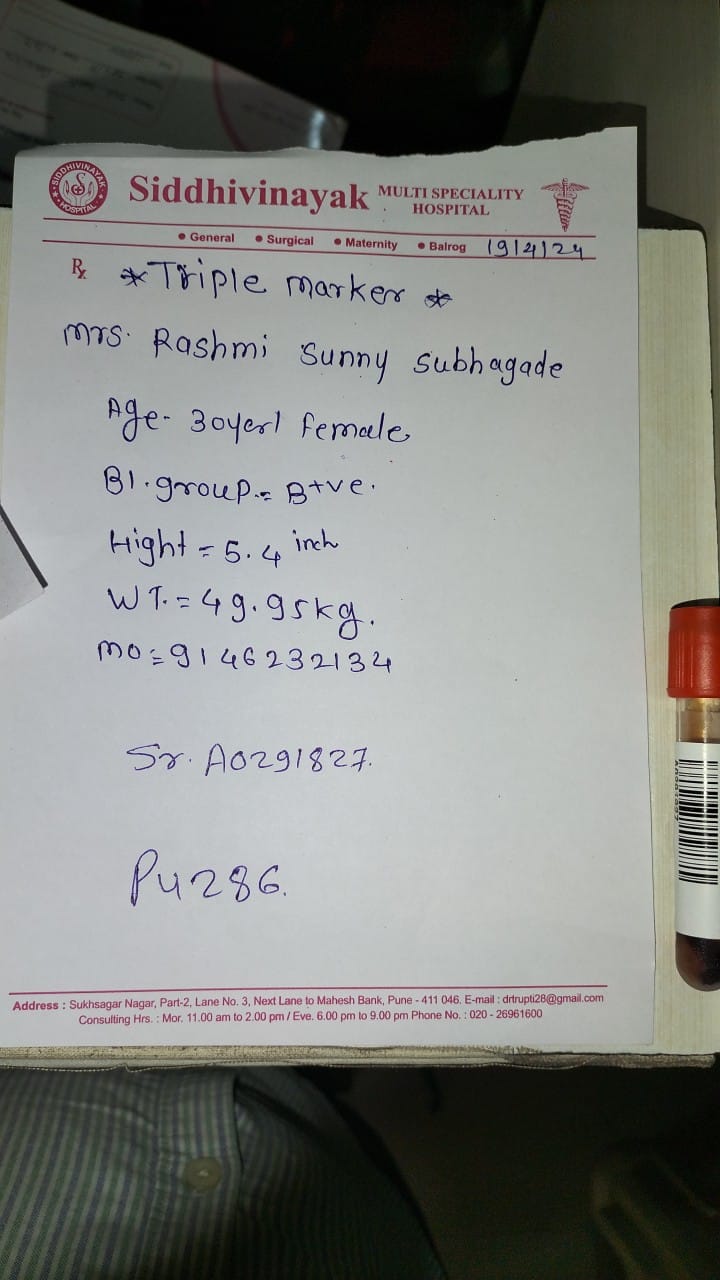 SIDDHIVINAYAK
HOSPITAL
Siddhivinayak MULTI SPECIALITY
HOSPITAL
• General • Surgical • Maternity • Balrog 19/4/24
Rx * Triple marker *
Mrs. Rashmi Sunny Subhagade
Age- 30yerl female
Bl.group.= B+ve.
Hight = 5.4 inch
WT.= 49.95kg.
mo=9146232134
Sr. A0291827.
PU286.
Address : Sukhsagar Nagar, Part-2, Lane No. 3, Next Lane to Mahesh Bank, Pune - 411 046. E-mail : drtrupti28@gmail.com
Consulting Hrs. : Mor. 11.00 am to 2.00 pm / Eve. 6.00 pm to 9.00 pm Phone No. : 020 - 26961600